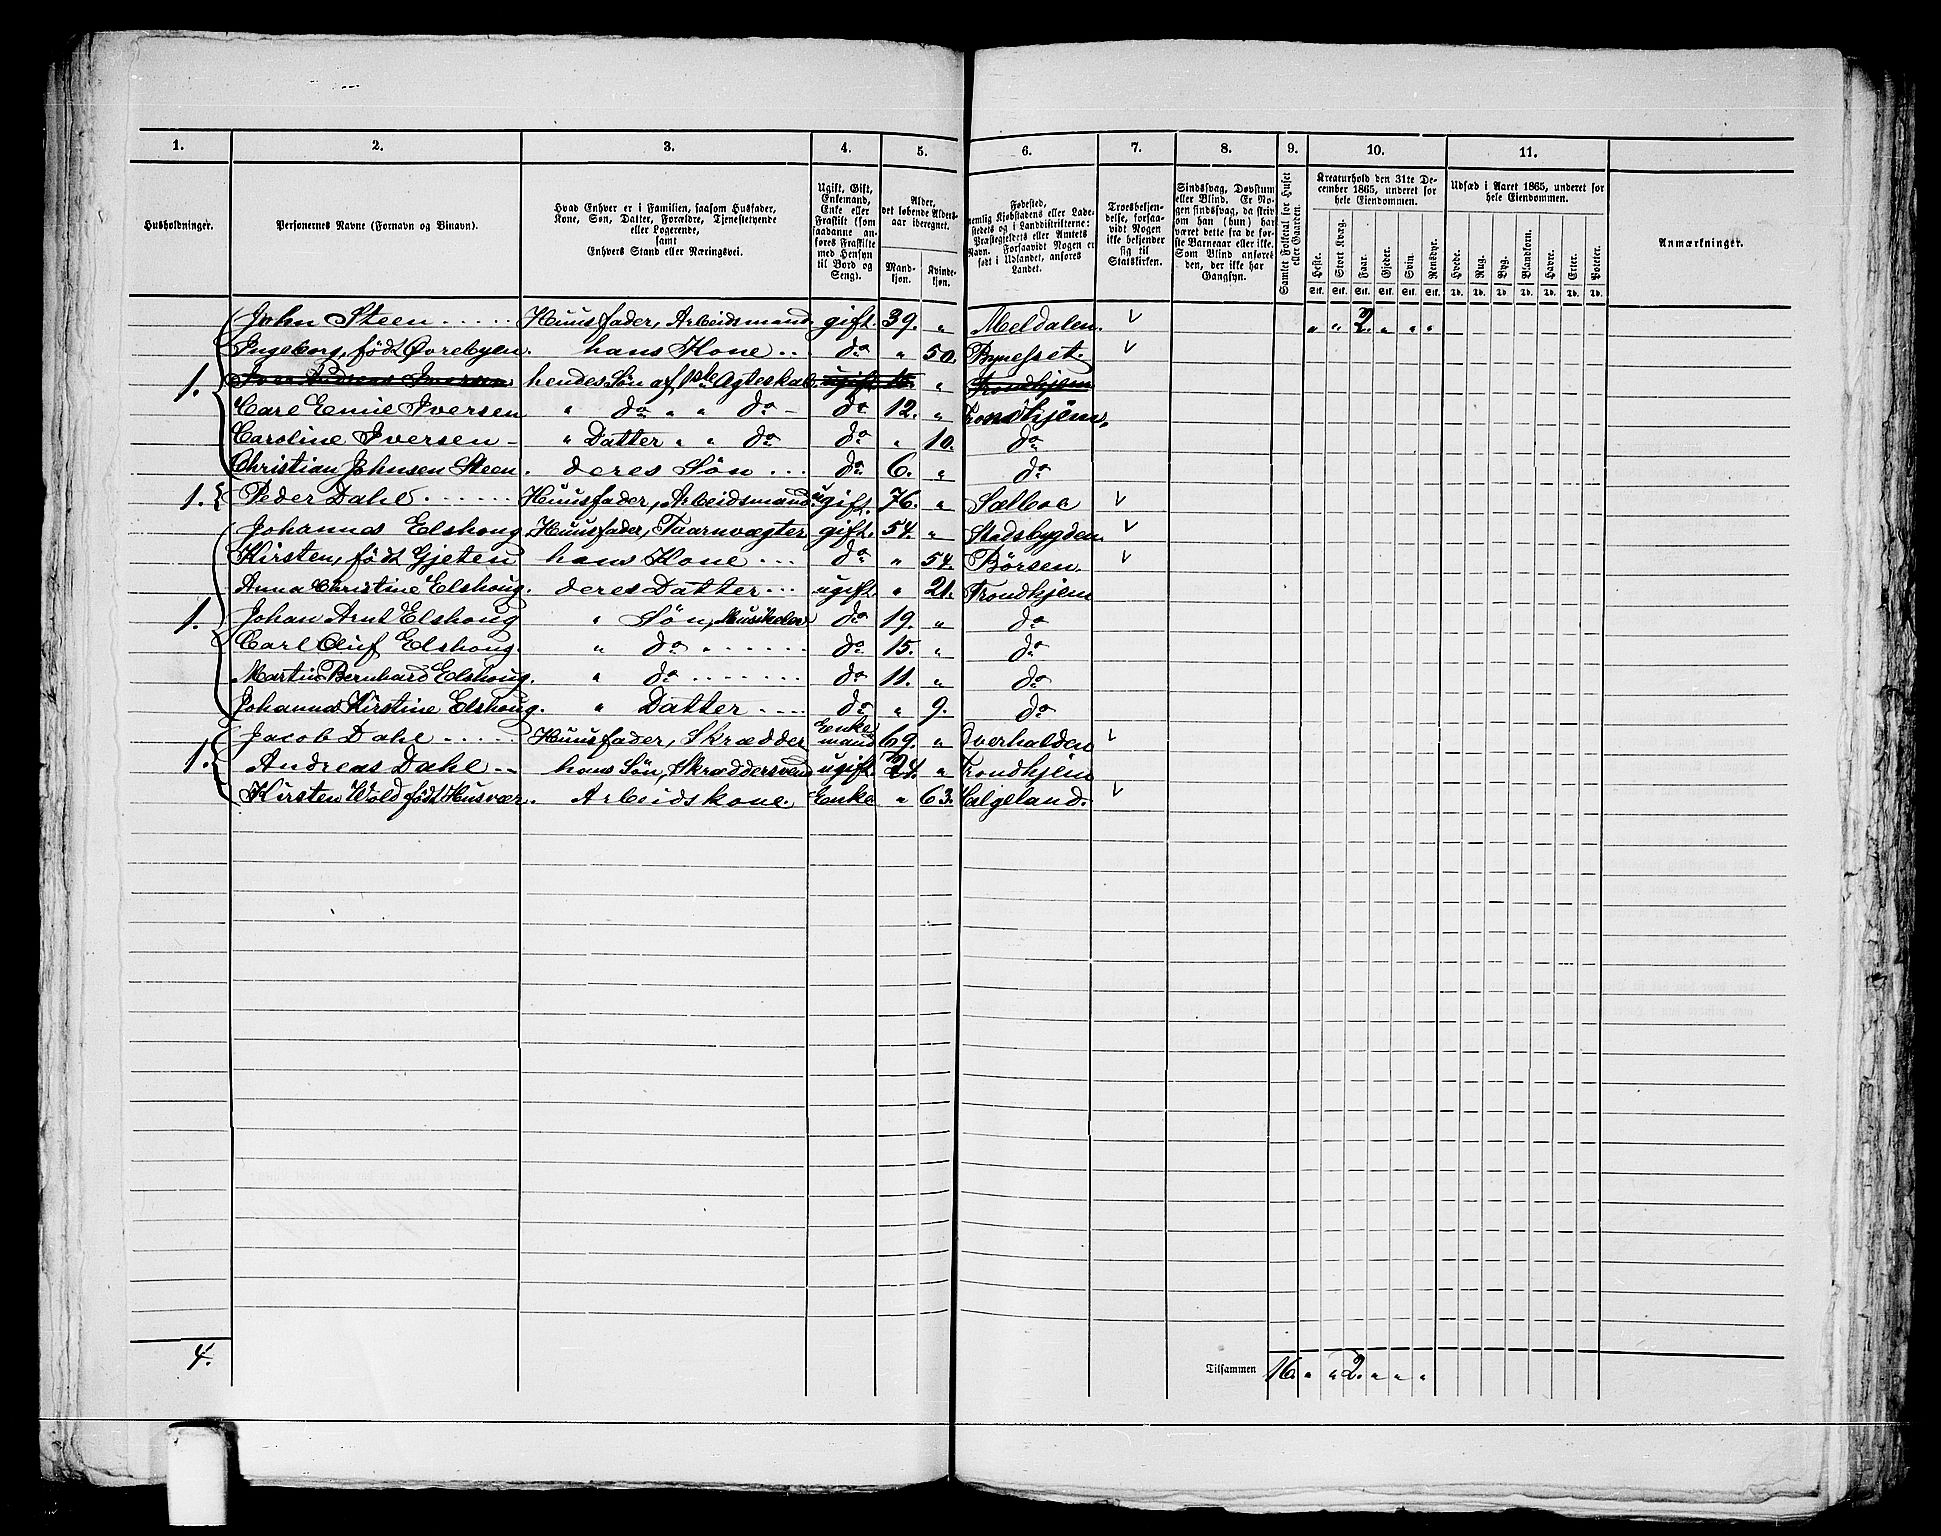 1. 2. 3. 4. 5. 6. 7. 8. 9. 10. 11.
Husholdninger.
Personernes Navne (Fornavn og Binavn).
Hvad Enhver er i Familien, saasom Husfader,
Kone, Søn, Datter, Forældre, Tjenestetyende
eller Logerende,
samt
Enhvers Stand eller Næringsvei.
Ugift, Gift,
Enkemand,
Enke eller
Fraskilt (som
saadanne an-
føres Fraskilte
med Hensyn
til Bord og
Seng).
Alder,
det løbende Alders-
aar iberegnet.
Mand-
kjøn.
Kvinde-
kjøn.
Fødested,
nemlig Kjøbstadens eller Lade-
stedets og i Landdistrikterne:
Præstegjeldets eller Amtets
Navn. Forsaavidt Nogen er
født i Udlandet, anføres
Landet.
Troesbekjen-
delse, forsaa-
vidt Nogen
ikke bekjender
sig til
Statskirken.
Sindssvag, Døvstum
eller Blind. Er No-
gen sindssvag, da skriv
om han (hun) har
været dette fra de før-
ste Barneaar eller ikke.
Som Blind anføres
den, der ikke har
Gangsyn.
Samlet Folketal for Huset
eller Gaarden.
Kreaturhold den 31te De-
cember 1865, underet for
hele Eiendommen.
Heste. Stort Kvæg. Faar. Gjeder. Svin. Rensdyr.
Stk. Stk. Stk. Stk. Stk. Stk.
Udsæd i Aaret 1865, underet for
hele Eiendommen.
Hvede. Rug. Byg. Blandkorn. Havre. Erter. Poteter.
Td. Td. Td. Td. Td. Td. Td.
Anmærkninger.
John Steen ..... Huusfader, Arbeidsmand gift. 39. " Meldalen. V " " 2. " " "
Ingeborg, født Øvrebyen. hans Kone .. do " 50. Bynesset. V
1. Iver Andreas Iversen hendes Søn af 1ste Ægteskab ugift 15. " Trondhjem
Carl Emil Iversen " do " " do - do 12. " Trondhjem.
Caroline Iversen - " Datter " " do do " 10. do
Christian Johnsen Steen. deres Søn ... do 6. " do
1. Peder Dahl ..... Huusfader, Arbeidsmand ugift. 76. " Sælboe V
Johannes Elshoug Huusfader, Taarnvægter gift. 54. " Stadsbygden. V
Kirsten, født Gjeten hans Kone ... do " 54. Börsen. V
Anna Christine Elshoug. deres Datter ... ugift. " 21. Trondhjem
1. Johan Arnt Elshoug " Søn, do 19. " do
Carl Oluf Elshoug. " do " ..... do 15. " do
Martin Bernhard Elshoug. " do ..... do 11. " do
Johanna Kirstine Elshoug. " Datter .... do " 9. do
Jacob Dahl ..... Huusfader, Skrædder Enkemand 69. " Overhalden V
1. Andreas Dahl -- hans Søn, Skræddersvend ugift. 24. " Trondhjem
Kirsten Wold født Husvær. Arbeidskone. Enke " 63. Helgeland. V
4. Tilsammen 16. " " 2. " " "